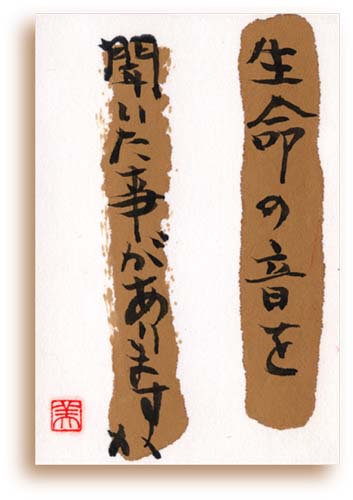 生命の音を
聞いた事がありますか